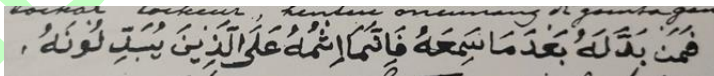 فَمَنْ بَدَّلَهُ بَعْدَ مَا سَمِعَهُ فَاِنَّمَا اِثْمُهُ عَلَى الَّذِيْنَ يُبَدِّلُوْنَهُ .